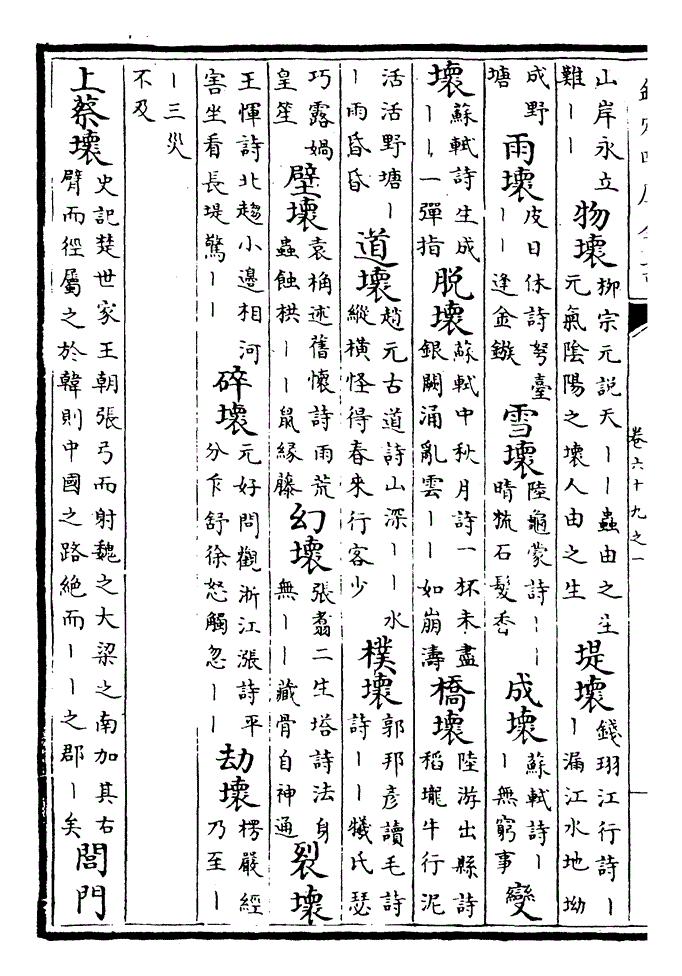 卷六十九之一
山岸永立
難丨丨
物壞
柳宗元說天丨丨蟲由之生
元氣陰陽之壞人由之生
堤壞
錢珝江行詩丨
丨漏江水地坳
成野
塘
雨壞
皮日休詩弩臺
丨丨逢金鏃
雪壞
陸龜蒙詩丨丨
晴梳石髮香
成壞
蘇軾詩丨
丨無窮事
變
壞
蘇軾詩生成
丨丨一彈指
脫壞
蘇軾中秋月詩一杯未盡
銀闕涌亂雲丨丨如崩濤
橋壞
陸游出縣詩
稻壠牛行泥
活活野塘丨
丨雨昏昏
道壞
趙元古道詩山深丨丨水
縱橫怪得春來行客少
樸壞
郭邦彥讀毛詩
詩丨丨犧氏瑟
巧露媧
皇笙
壁壞
袁桷述舊懷詩雨荒
蟲蝕栱丨丨鼠緣藤
幻壞
張翥二生塔詩法身
無丨丨藏骨自神通
裂壞
王惲詩北趨小邊相河
害坐看長堤驚丨丨
碎壞
元好問觀浙江漲詩平
分乍舒徐怒觸忽丨丨
劫壞
楞嚴經
乃至丨
丨三災
不及
上蔡壞
史記楚世家王朝張弓而射魏之大梁之南加其右
臂而徑屬之於韓則中國之路絕而丨丨之郡丨矣
閭門